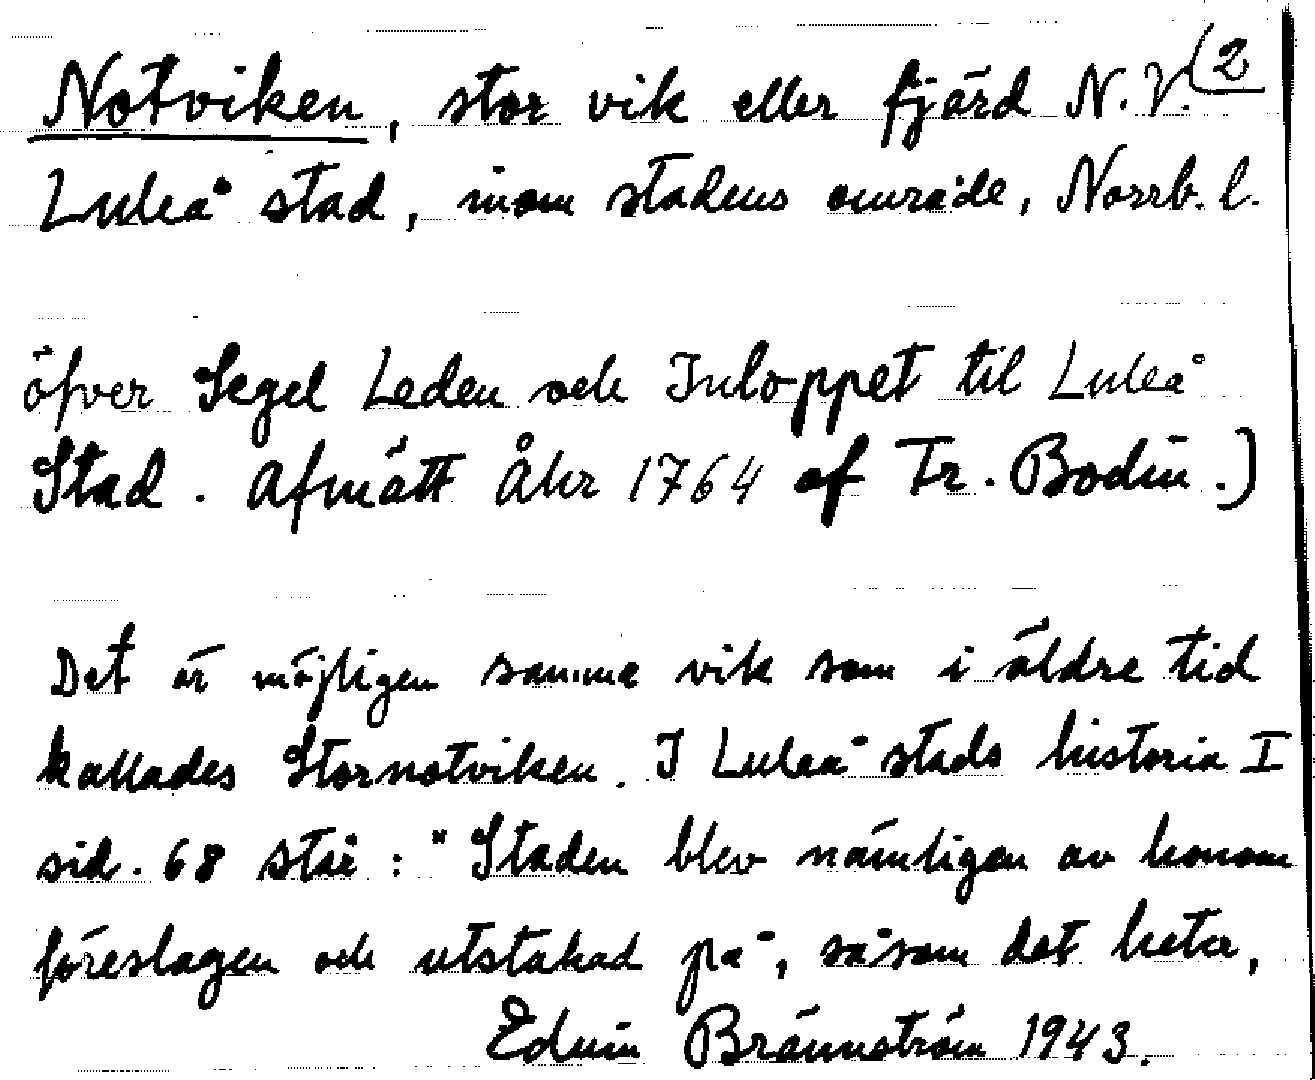 Notviken, stor vik eller fjärd N.V. (2
Luleå stad, inom stadens område, Norrb. l.
öfver Segel Leden och Inloppet til Luleå
Stad. Afmätt Åhr 1764 af Fr. Bodin.)
Det är möjligen samma vik som i äldre tid
kallades Stornotviken. I Luleå stads historia I
sid. 68 står: "Staden blev nämligen av honom
föreslagen och utstakad på, såsom det heter,
Edvin Brännström 1943.